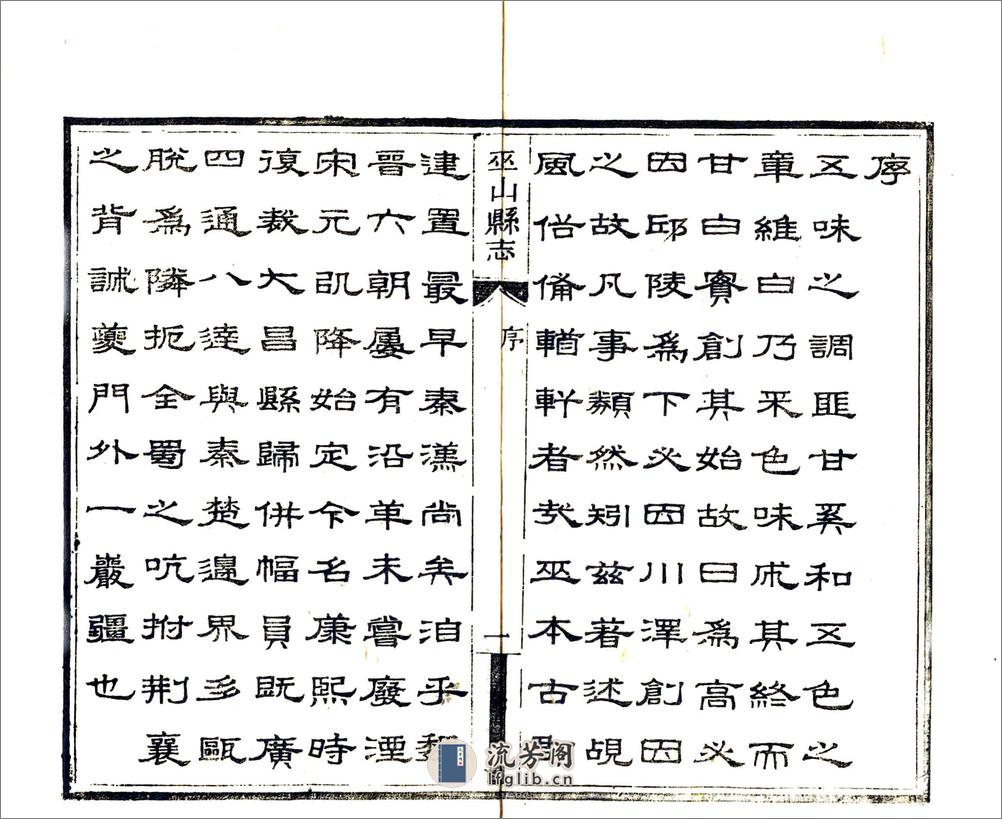 序
五味之調匪甘奚和五色之
章維白乃采色味成其終而
甘白實創其始故曰為高必
因邱陵為下必因川澤創因
之故凡事類然矧茲著述覘
風俗備輶軒者哉巫本古
巫山縣志
序
一
建置最早秦漢尚矣洎乎
晉六朝屢有沿革未嘗廢湮
宋元降始定今名康熙時
復裁大昌縣歸併幅員既廣
四通八達與秦楚邊界多甌
脫為隣扼全蜀之吭拊荊襄
之背誠夔門外一巖疆也
流芳阁
lfglib.cn